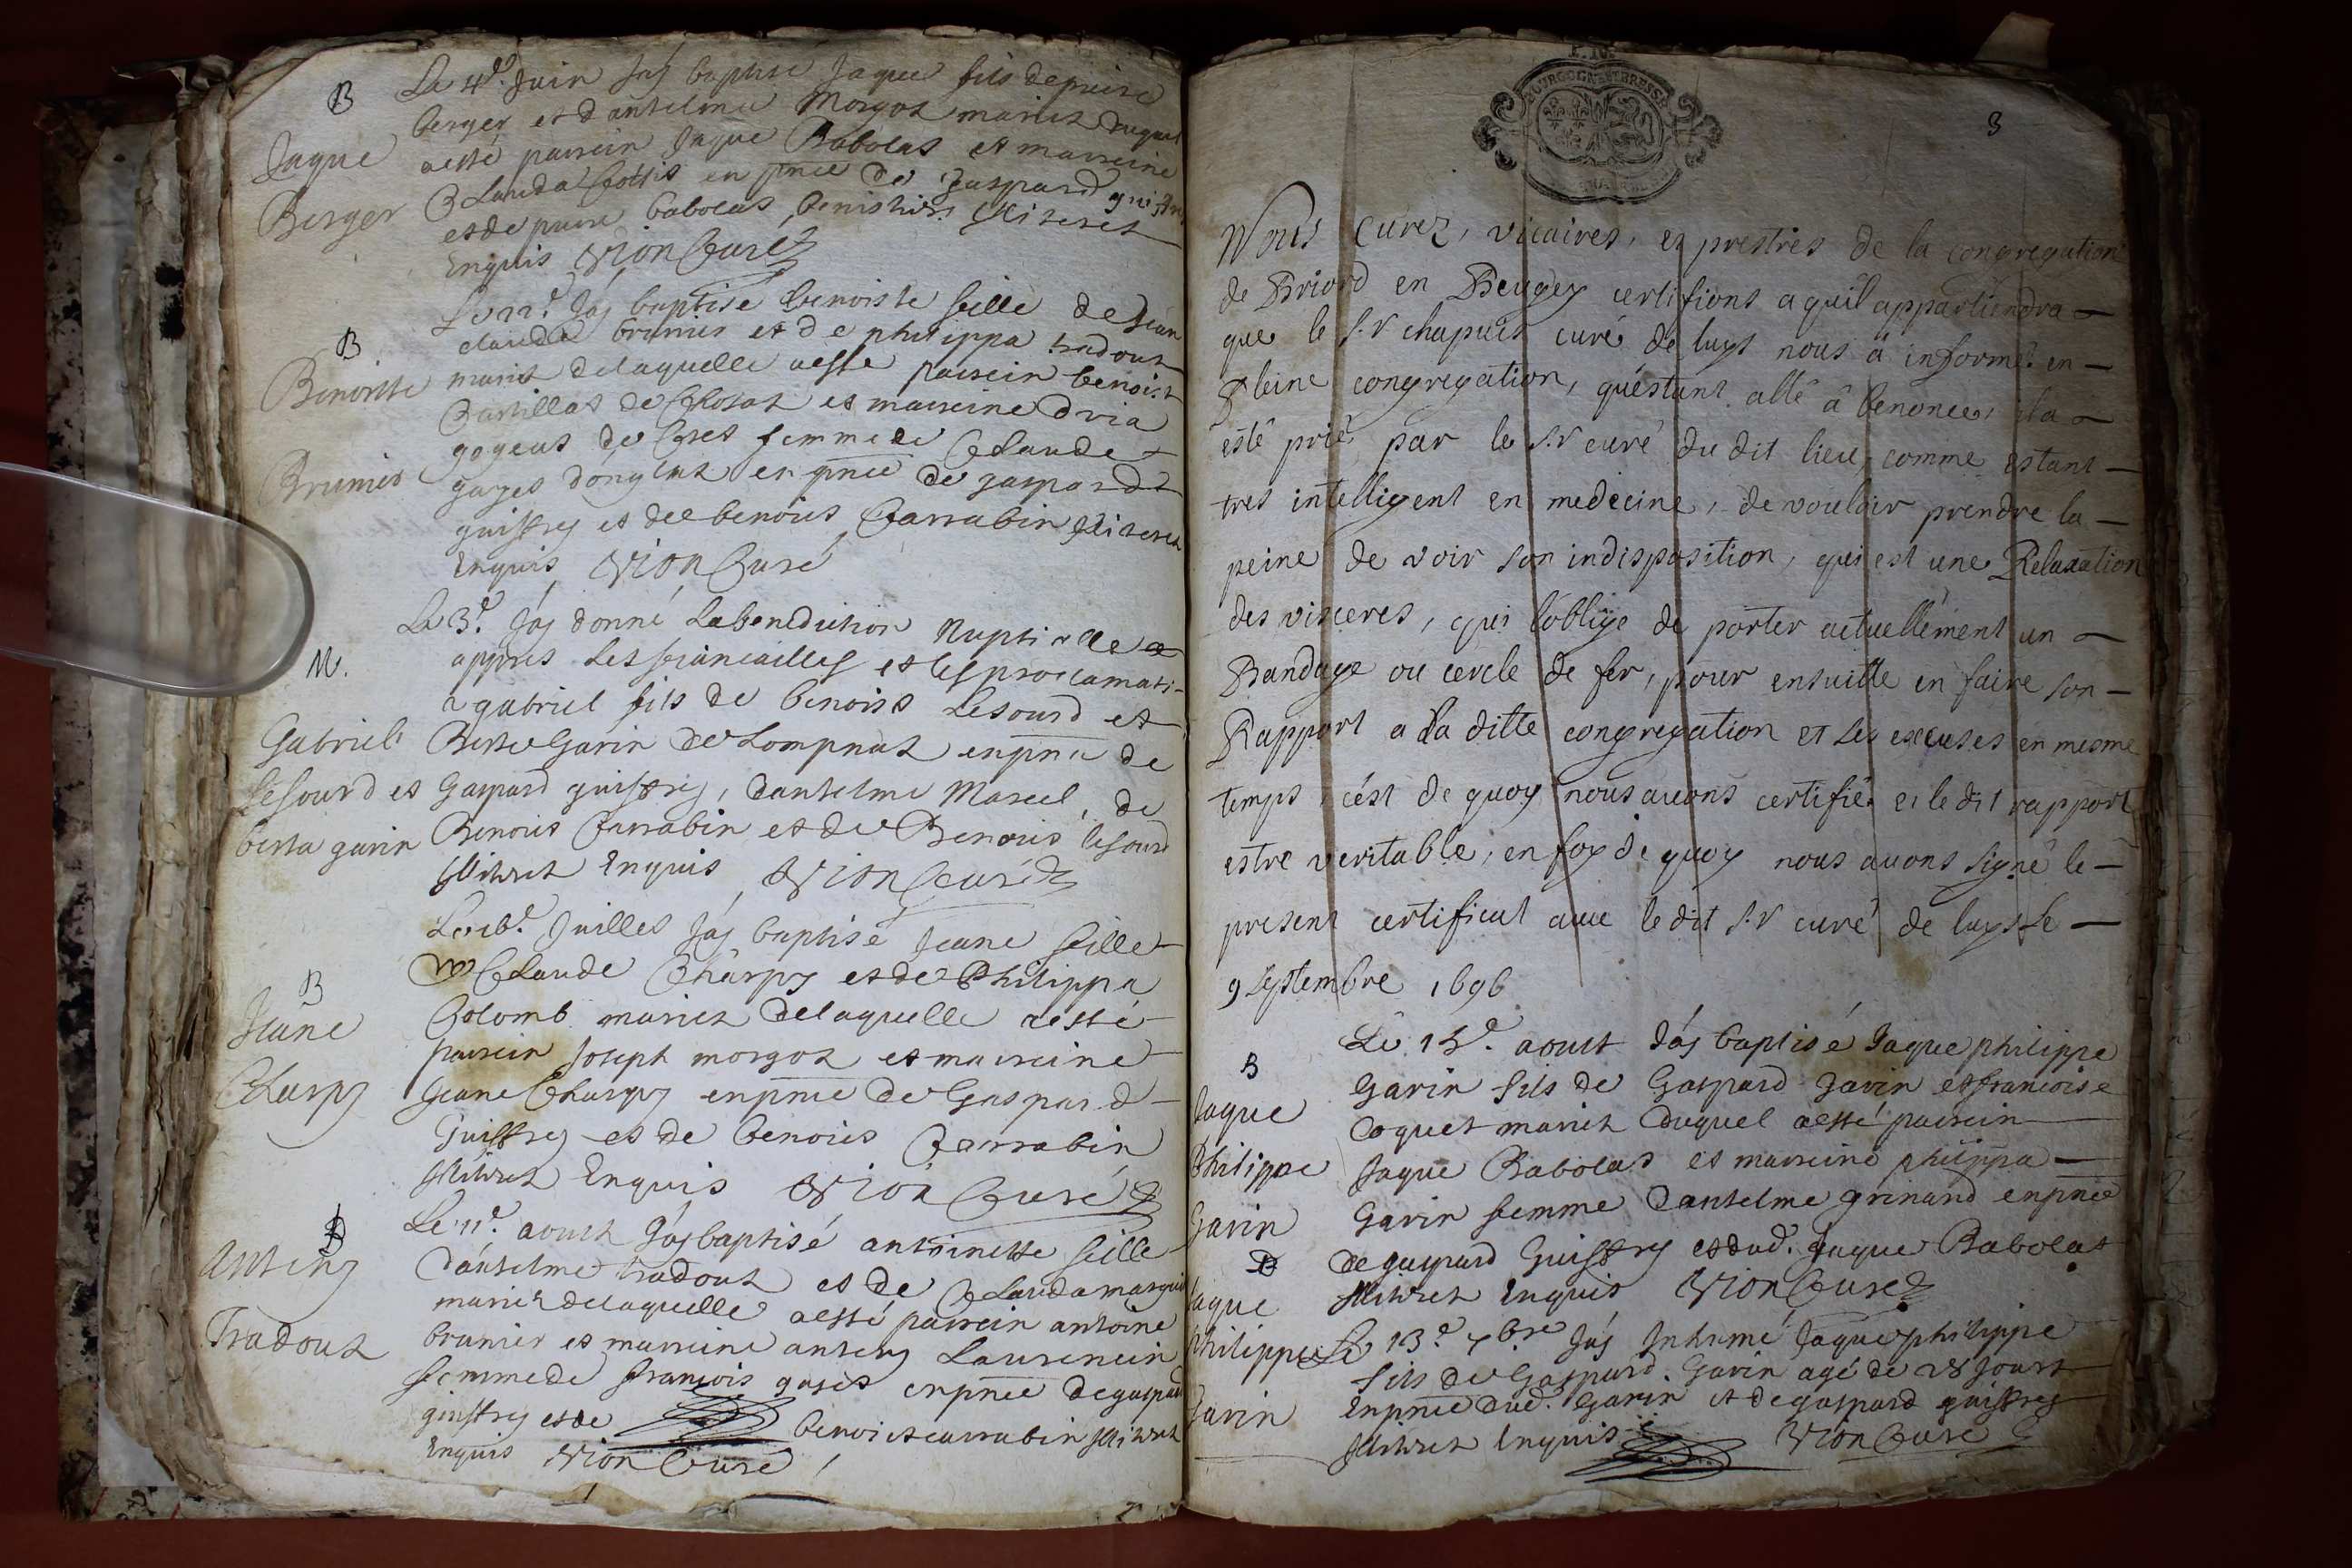 B
Jaque
Berger
Le 4e. Juin Jay baptisé Jaque fils de pierre
berger et d'antelme Morgot mariez duquel
a esté parrein Jaque Babolat et marreine
Clauda en pnce de gaspard
et de pierre babolat, illiterez
Enquis Vion Curé
B
Benoiste
Brunier
Jay baptisé benoiste fille de Jean
claude brunier et de philippa tradout
mariez de laquelle a esté parrein benoist
de et marreine
de femme de Claude
en pnce de gaspard
guiffrey et de benoist Carrabin illiterez
Enquis Vion Curé
M.
Gabriel
Lesourd et
berta garin
Le 3e. Jay donné La benediction Nuptialle
appres Les fiancailles et les proclamati-
a gabriel fils de benoist Lesourd et
Berte Garin de Lompnas en pnce de
Gaspard guiffrey, d'antelme Marcel, de
Benoist Carrabin et de Benoist lesourd
illiterez Enquis Vion Curé
B
Jeane
Charpy
Juillet Jay baptisé Jeane fille
de Claude Charpy et de Philippa
Colomb mariez de laquelle a esté
parrein Joseph morgot et marreine
Jeane Charpy en pnce de Gaspard
Guiffrey et de benoist Carrabin
illiterez Enquis Vion Curé
B
Anteny
Tradout
Le 11e. aoust Jay baptisé antoinette fille
d'antelme tradout et de Clauda
mariez de laquelle a esté parrein antoine
brunier et marreine anteny Laurencin
femme de francois en pnce de gaspard
guiffrey et de benoist carrabin illiterez
Enquis Vion Curé
BOURGOGNE ET BRESSE
3
Nous curez, vicaires, et prestres de la congregation
de Briord en Beugey certifions a qu'il appartiendra
que le S.r chapuis curé de luys nous â informé en
pleine congregation, qu'éstant allé â benonce, il a
esté prié par le S.r curé du dit lieu, comme estant
tres intelligent en medecine, de vouloir prendre la
peine de voir son indisposition, qui est une Relaxation
des visceres, qui l'oblige de porter actuellement un
Bandage ou cercle de fer, pour ensuitte en faire son
Rapport a la ditte congregation et ses excuses en mesme
temps, c'ést de quoy nous avons certifié et le dit rapport
estre veritable, en foy de quoy nous avons signé le
present certificat avec le dit S.r curé de luys Le
9 septembre 1696
B
Jaque
Philippe
Garin
Le 15e. aoust Jay baptisé Jaque philippe
Garin fils de Gaspard Garin et francoise
Coquet mariez duquel a esté parrein
Jaque Babolat et marreine philippa
Garin femme d'antelme grinand en pnce
de gaspard Guiffrey et dud. Jaque Babolat
illiterez Enquis Vion Curé
Jaque
Philippe
Garin
Le 13e. 7bre Jay Inhumé Jaque philippe
fils de Gaspard Garin agé de 28 Jours
En pnce dud. Garin et de gaspard guiffrey
illiterez Enquis Vion Curé